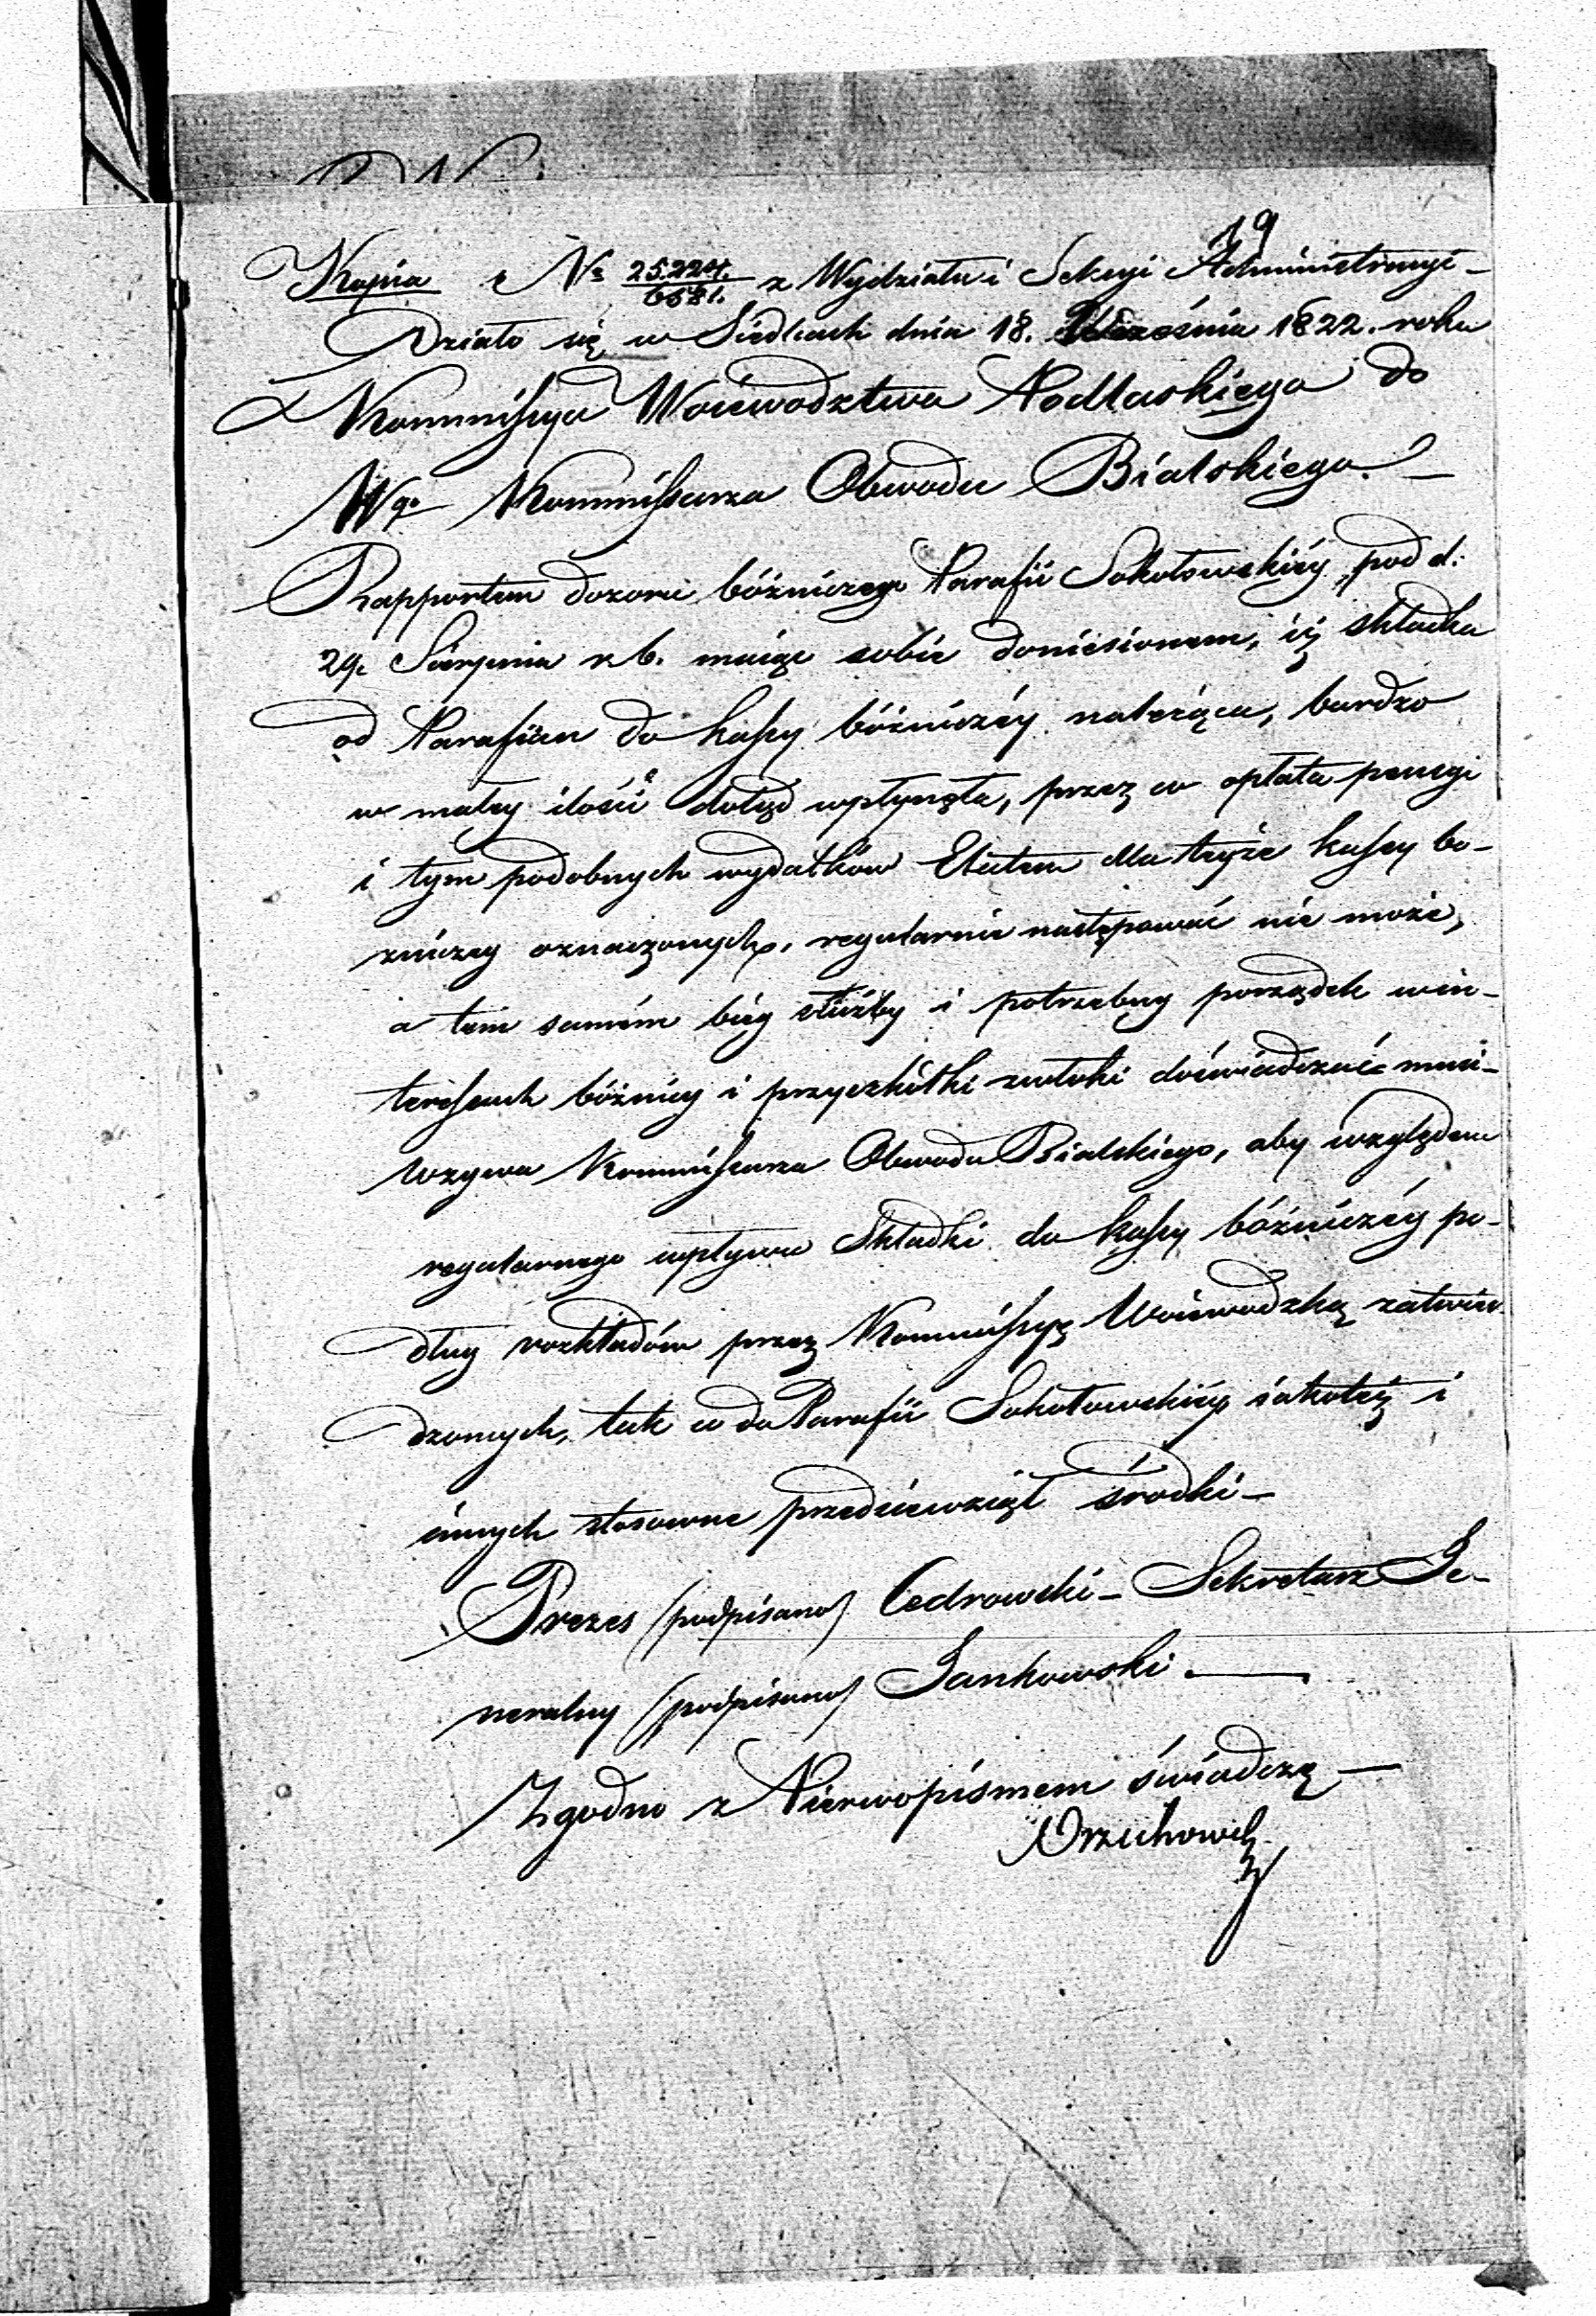 19
Kopia z Nr 25.224./6581. z Wydziału i Sekcyi Administracyi –
Działo się w Siedlcach dnia 18. Września 1822. roku
Kommissya Woiewodztwa Podlaskiego do
Wgo Kommissarza Obwodu Bialskiego. –
Rapportem dozoru bóżniczego Parafii Sokołowskiéy pod d:
29. Sierpnia r. b. maiąc sobie doniesionem, iż składka
od Parafian do kassy bóżniczéy należąca, bardzo
w małey ilości dotąd wpłynęła, przez co opłata pensyi
i tym podobnych wydatków Etatem dla teyże kassy bo-
zniczey oznaczonych, regularnie następować nie może,
a tem samém bieg służby i potrzebny porządek w in-
teressach bóżnicy i przyczkółki zwłoki doświadczać musi –
wzywa Kommissarza Obwodu Bialskiego, aby względem
regularnego wpływu Składki do kassy bóżniczéy po-
dług rozkładów przez Kommissyę Woiewodzką zatwier-
dzonych, tak co do Parafii Sokołowskiéy iakoteż i
innych stosowne przedsiewziął środki –
Prezes (podpisano) Cedrowski – Sekretarz Je-
neralny (podpisano) Jankowski
Zgodno z Pierwopismem świadczę –